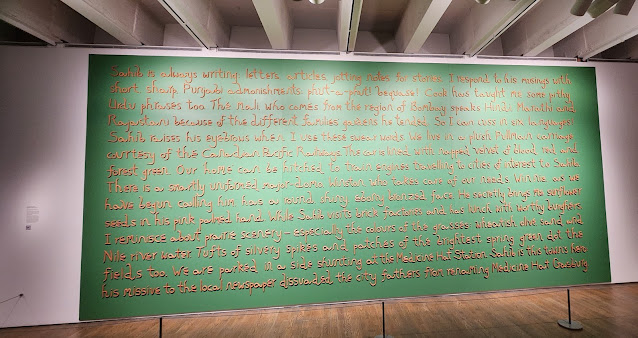 Sahib is always writing: letters, articles, jotting notes to stories. I respond to his musings with
short, sharp, Punjabi admonishments: phut-a-phut bequasel Cook has taught me some pithy,
Urdu phrases too. The mali who comes from the region of Bombay speaks Hindi, Marathi and
Rajastani because of the different families gardens he tended. So I can cuss in six languages!
Sahib raises his eyebrows when I use these swear words. We live in a plush Pullman carriage
courtesy of the Canadian Pacific Railways. The car is lined with ripped velvet of blood red and
forest green. Our home can be hitched to train engines travelling to cities of interest to Sahib.
There is a smartly uniformed major-domo Winston who takes care of our needs. Winnie as we
have begun calling him has a round, shiny ebony bronzed face. He secretly brings me sunflower
seeds in his pink palmed hand. While Sahib visits brick factories and has lunch with the city burghers
I reminisce about prairie scenery - especially the colours of the grasses: wheatish, olive sand and
Nile river water. Tufts of silvery spikes and patches of the brightest spring green dot the
fields too. We are parked in a side shunting at the Medicine Hat Station. Sahib is this town's hero
his missive to the local newspaper dissuaded the city fathers from renaming Medicine Hat Gasburg